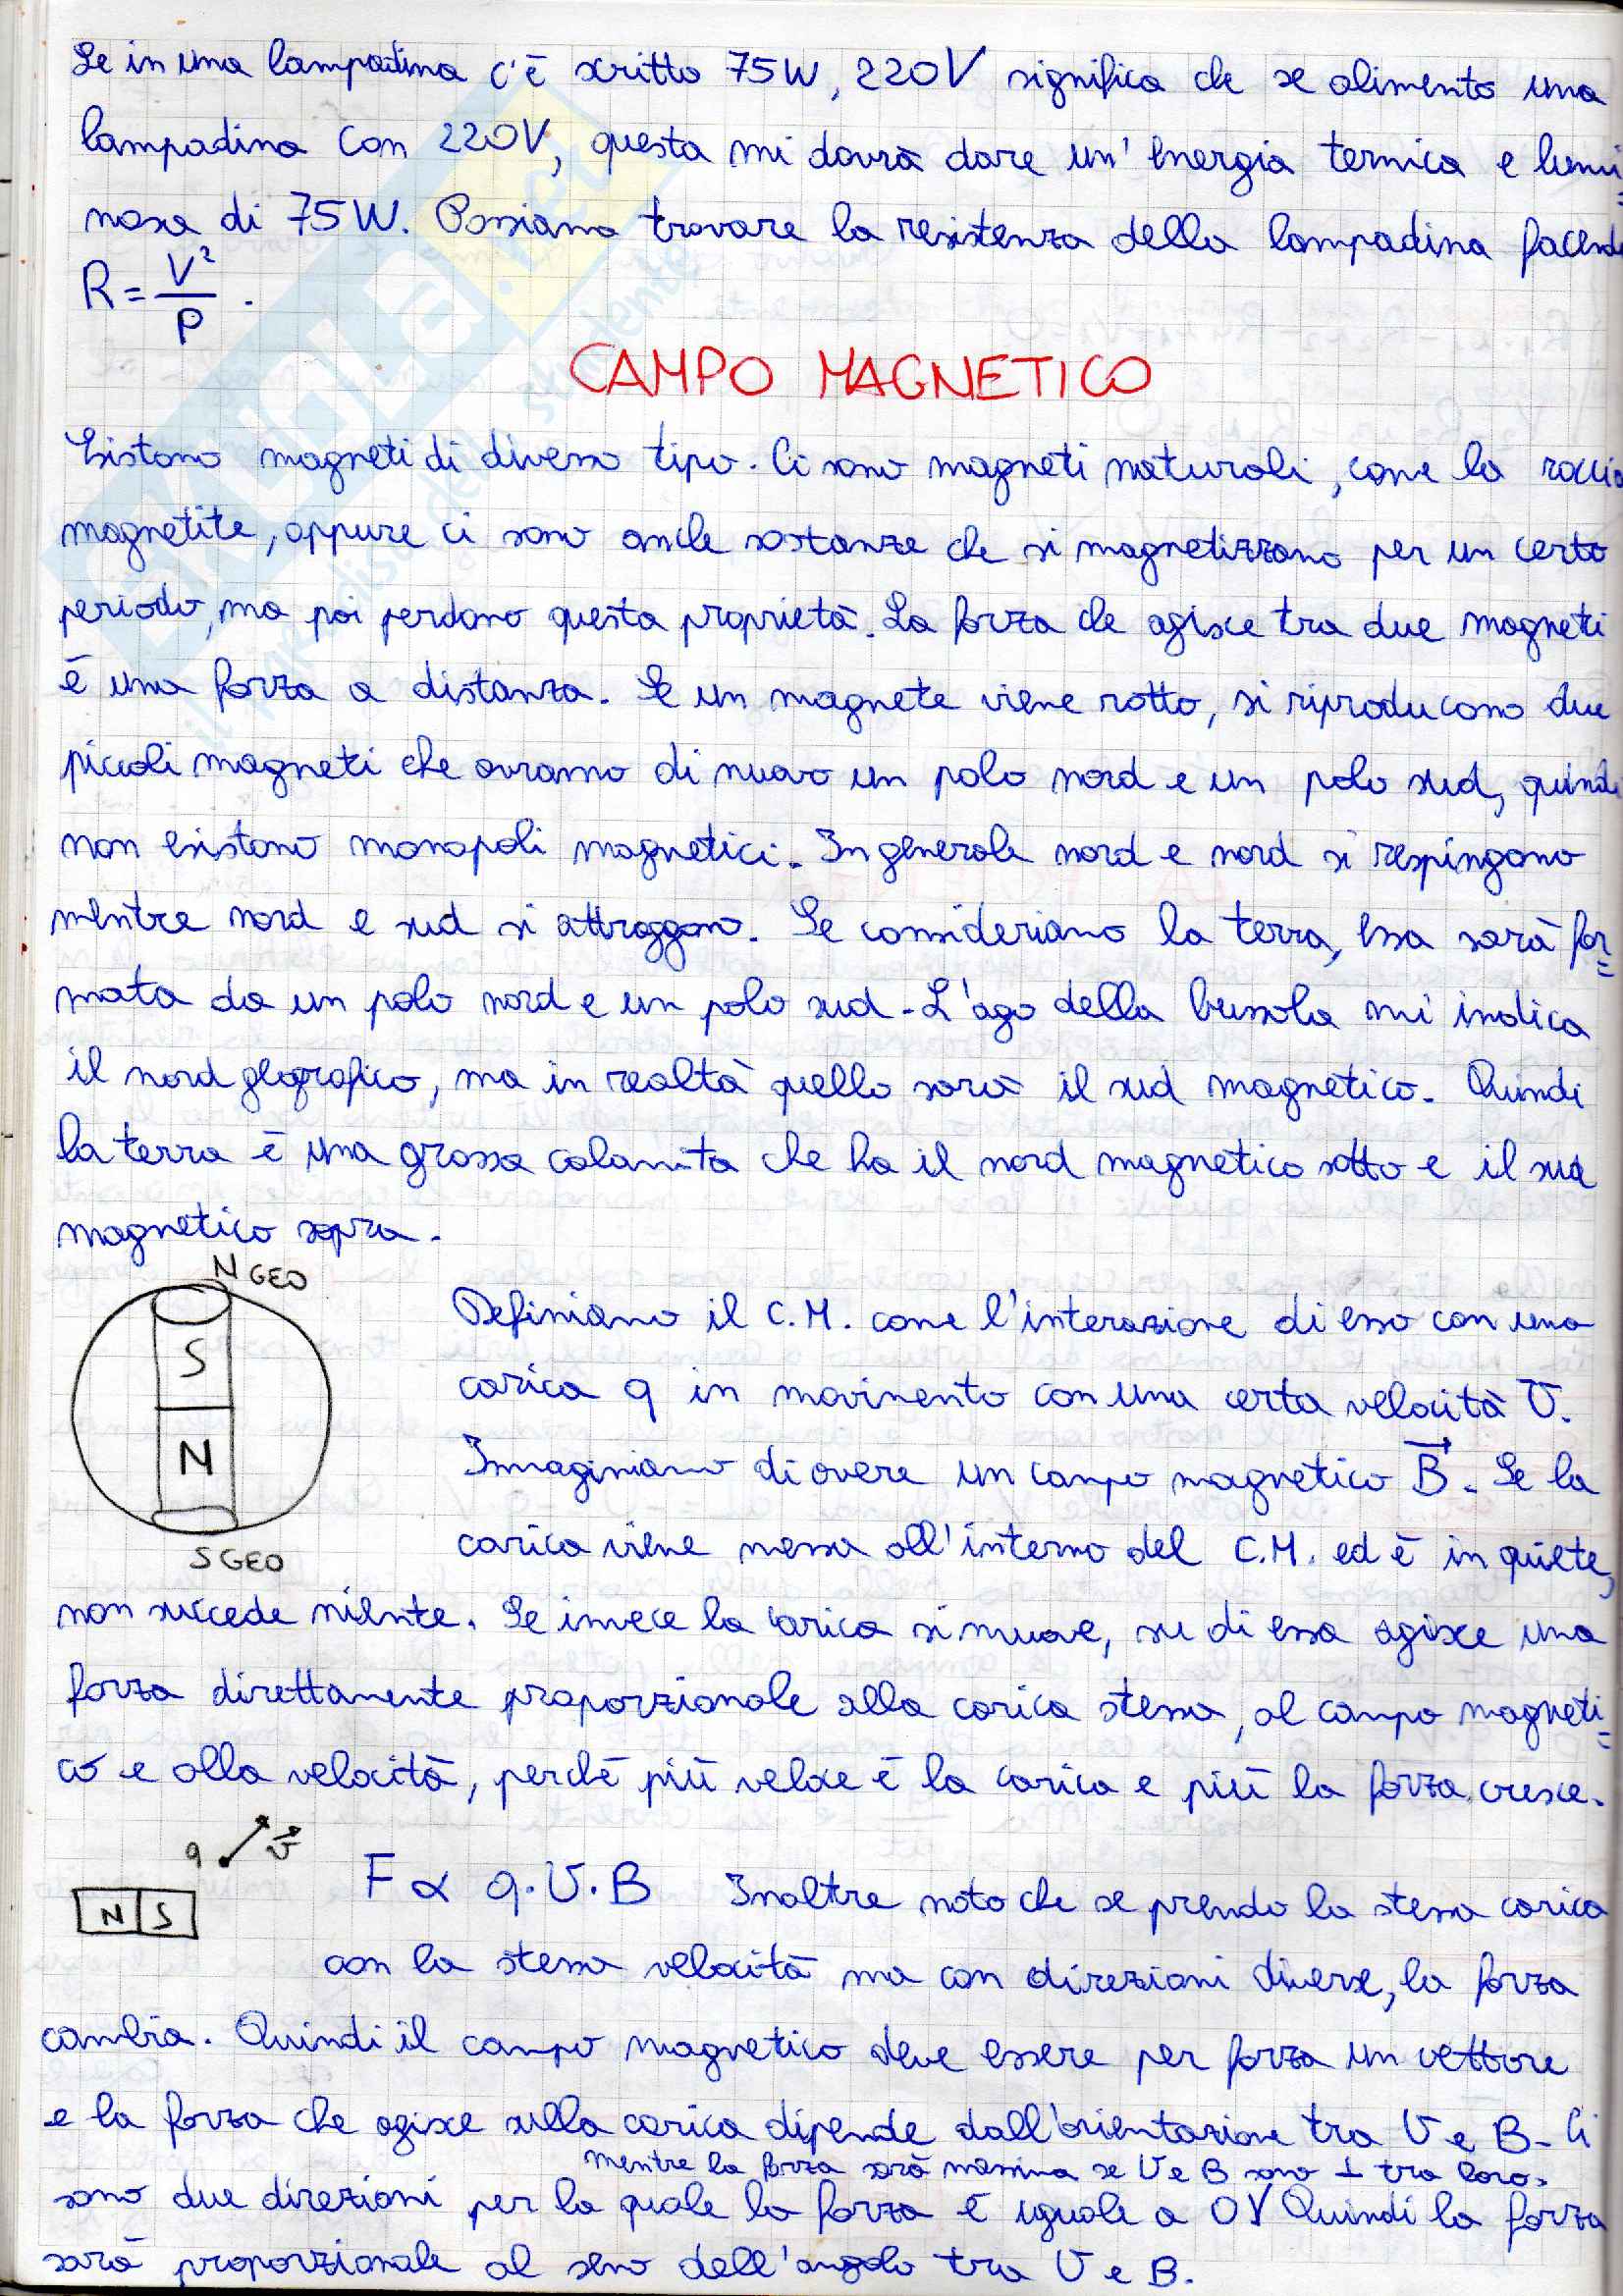 Se in una lampadina c'è scritto 75W, 220V significa che se alimento una
lampadina con 220V, questa mi dovrà dare un' energia termica e lumi=
nosa di 75W. Possiamo trovare la resistenza della lampadina facendo
R = V²/P .
CAMPO MAGNETICO
Esistono magneti di diverso tipo. Ci sono magneti naturali, come la roccia
magnetite, oppure ci sono anche sostanze che si magnetizzano per un certo
periodo, ma poi perdono questa proprietà. La forza che agisce tra due magneti
è una forza a distanza. Se un magnete viene rotto, si riproducono due
piccoli magneti che avranno di nuovo un polo nord e un polo sud, quindi
non esistono monopoli magnetici. In generale nord e nord si respingono
mentre nord e sud si attraggono. Se consideriamo la terra, essa sarà for=
mata da un polo nord e un polo sud. L'ago della bussola mi indica
il nord geografico, ma in realtà quello sarà il sud magnetico. Quindi
la terra è una grossa calamita che ha il nord magnetico sotto e il sud
magnetico sopra.
N GEO
S
N
S GEO
Definiamo il C.M. come l'interazione di esso con una
carica q in movimento con una certa velocità v.
Immaginiamo di avere un campo magnetico B⃗. Se la
carica viene messa all'interno del C.M. ed è in quiete,
non succede niente. Se invece la carica si muove, su di essa agisce una
forza direttamente proporzionale alla carica stessa, al campo magneti=
co e alla velocità, perché più veloce è la carica e più la forza cresce.
q v⃗
N S
F ∝ q·v·B Inoltre noto che se prendo la stessa carica
con la stessa velocità ma con direzioni diverse, la forza
cambia. Quindi il campo magnetico deve essere per forza un vettore
e la forza che agisce sulla carica dipende dall'orientazione tra v e B. Ci
mentre la forza sarà massima se v e B sono ⊥ tra loro.
sono due direzioni per la quale la forza è uguale a 0 V Quindi la forza
sarà proporzionale al seno dell'angolo tra v e B.